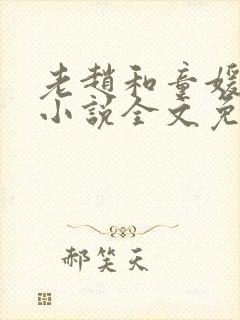 老趙和童媛
小說全文免
郝笑天